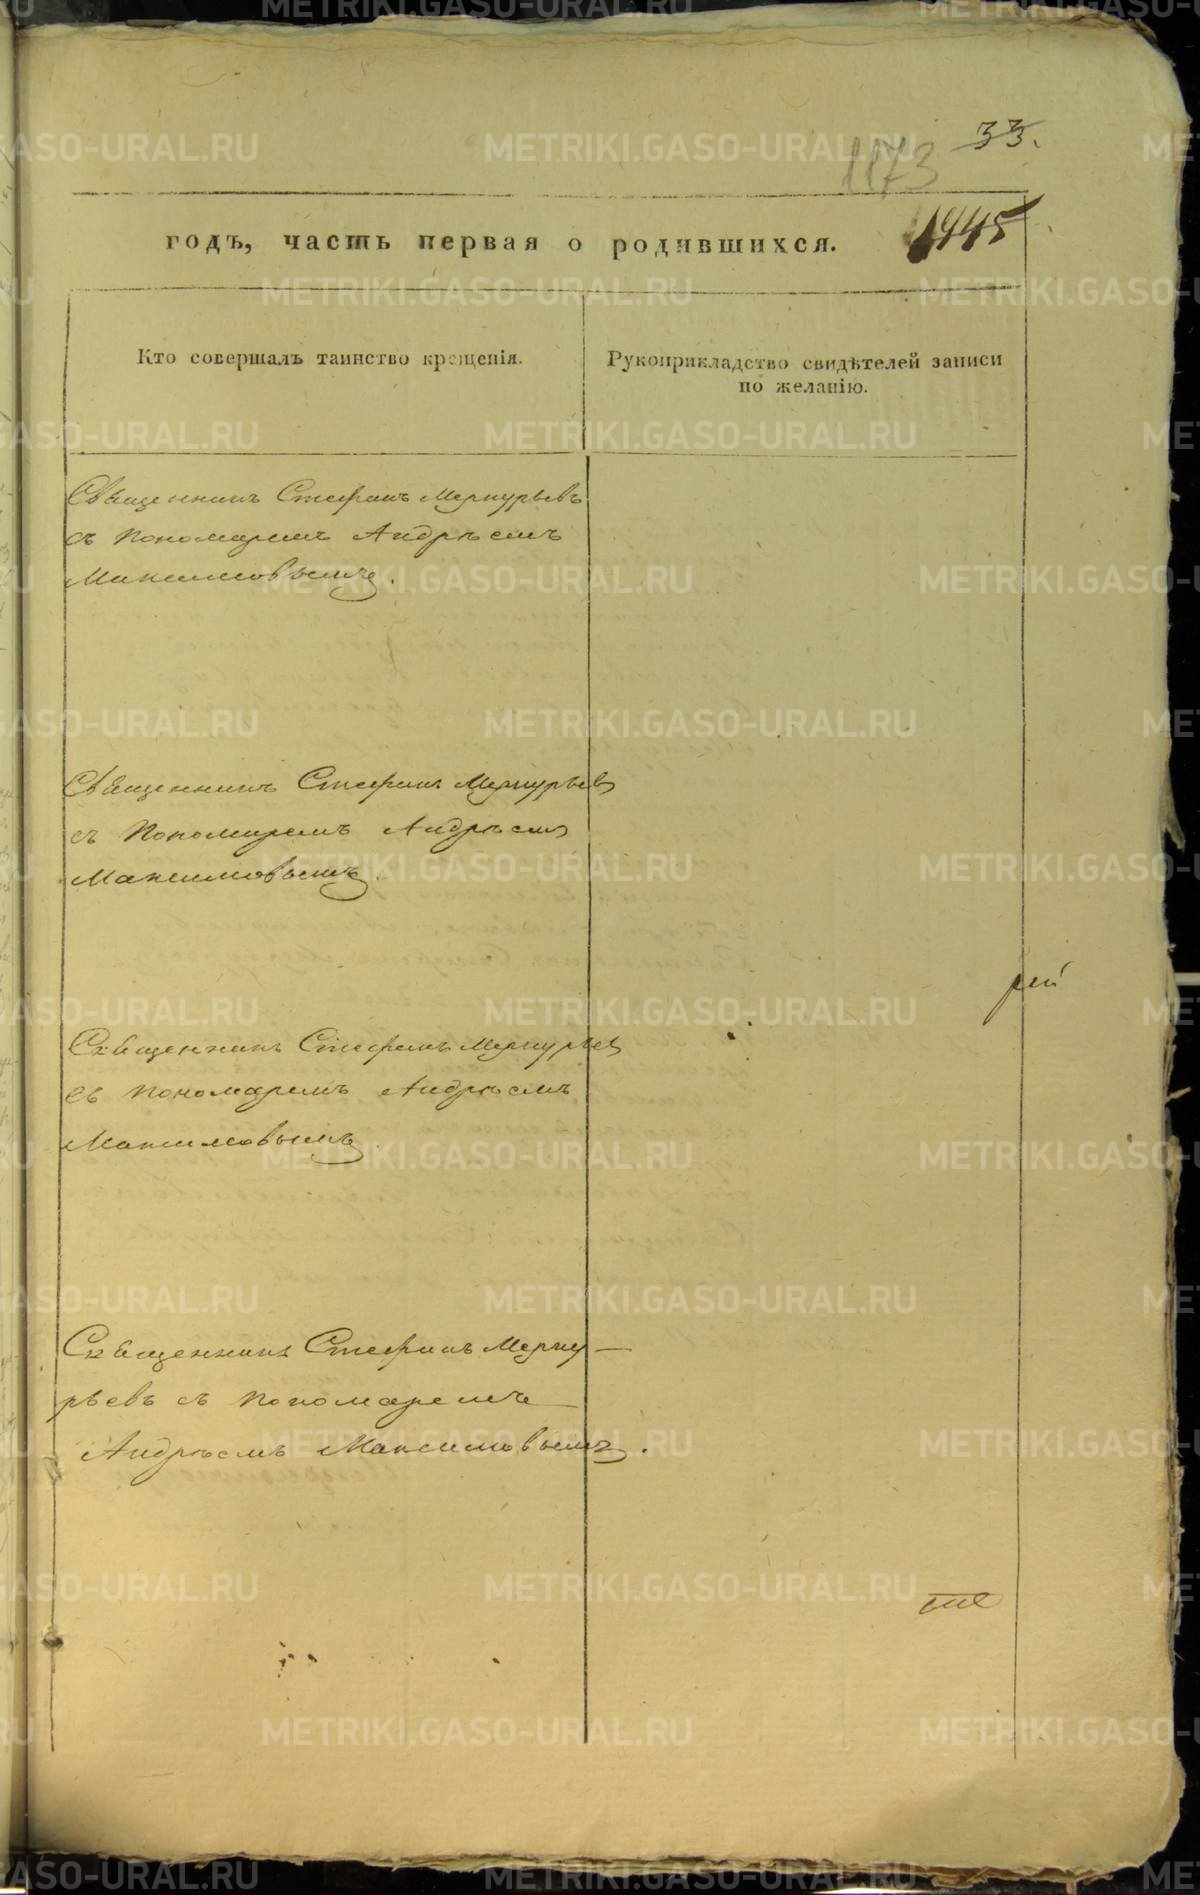 33.
1173
1445
годъ, часть первая о родившихся.
Кто совершалъ таинство крещенія.
Рукоприкладство свидѣтелей записи
по желанію.
Священникъ Стефанъ Меркурьевъ
съ Пономаремъ Андрѣемъ
Максимовымъ.
Священникъ Стефанъ Меркурьевъ
съ Пономаремъ Андрѣемъ
Максимовымъ.
рей
Священникъ Стефанъ Меркурьевъ
съ Пономаремъ Андрѣемъ
Максимовымъ.
Священникъ Стефанъ Мерку-
рьевъ съ Пономаремъ
Андрѣемъ Максимовымъ.
METRIKI.GASO-URAL.RU